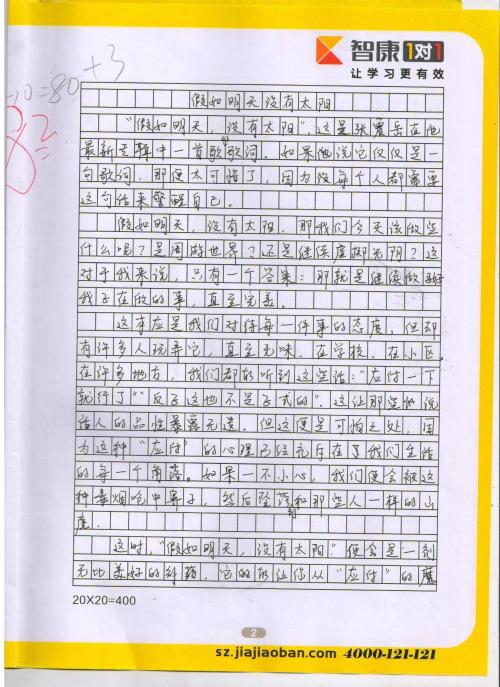 智康1对1
让学习更有效
=80+3
假如明天没有太阳
“假如明天，没有太阳”，这是张震岳在他
最新专辑中一首歌歌词。如果他说它仅仅是一
句歌词，那便太可惜了，因为没每个人都需要
这句话来警醒自己。
假如明天，没有太阳，那我们今天该做些
什么呢？是周游世界？还是继续虚掷光阴？这
对于我来说，只有一个答案：那就是继续做好
我正在做的事，直至完美。
这本应是我们对待每一件事的态度，但却
有许多人玩弄它，直至无味。在学校，在小区，
在许多地方，我们都能听到这些话：“应付一下
就行了”“反正这也不是正式的”。这让那些
话人的品性暴露无遗。但这便是可怕之处，因
为这种“应付”的心理已经充斥在了我们生活
的每一个角落。如果一不小心，我们便会被这
种毒烟呛中鼻子，然后坠落和那些人一样的
度。
这时，“假如明天，没有太阳”便会是一剂
无比美好的解药，它的能让你从“应付”的魔
20X20=400
2
sz.jiajiaoban.com 4000-121-121